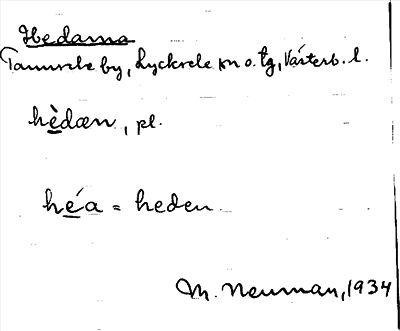 Hedarna
Tannsele by, Lycksele sn o. tg, Västerb. l.
hèdæn, pl.
héa = heden
M. Neuman, 1934